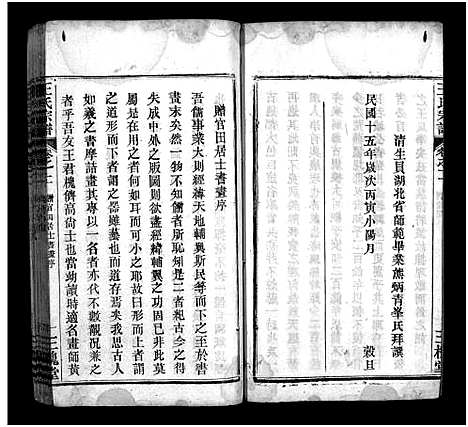 王氏宗譜
清生員湖北省師範畢業熊炳青峯氏拜譔
民國十五年歲次丙寅小陽月 穀旦
三槐堂
王氏宗譜
贈官田居士書畫序
三槐堂
贈官田居士書畫序
吾儒事業大則經緯天地輔興斯民等而下之至於書
畫末矣然一物不知儒者所恥矧是二者粗古今之得
失成中外之版圖則欲盡經緯輔翼之功固已非此莫
屬是在用之者何如耳而可小之耶故曰形而上者謂
之道形而下者謂之器雖藝也而道存焉矣我思古人
如羲之書摩詰畫其專以一名者亦代不數觀况兼之
者乎吾友王君槐儕高尚士也當幼讀時適名畫師黃